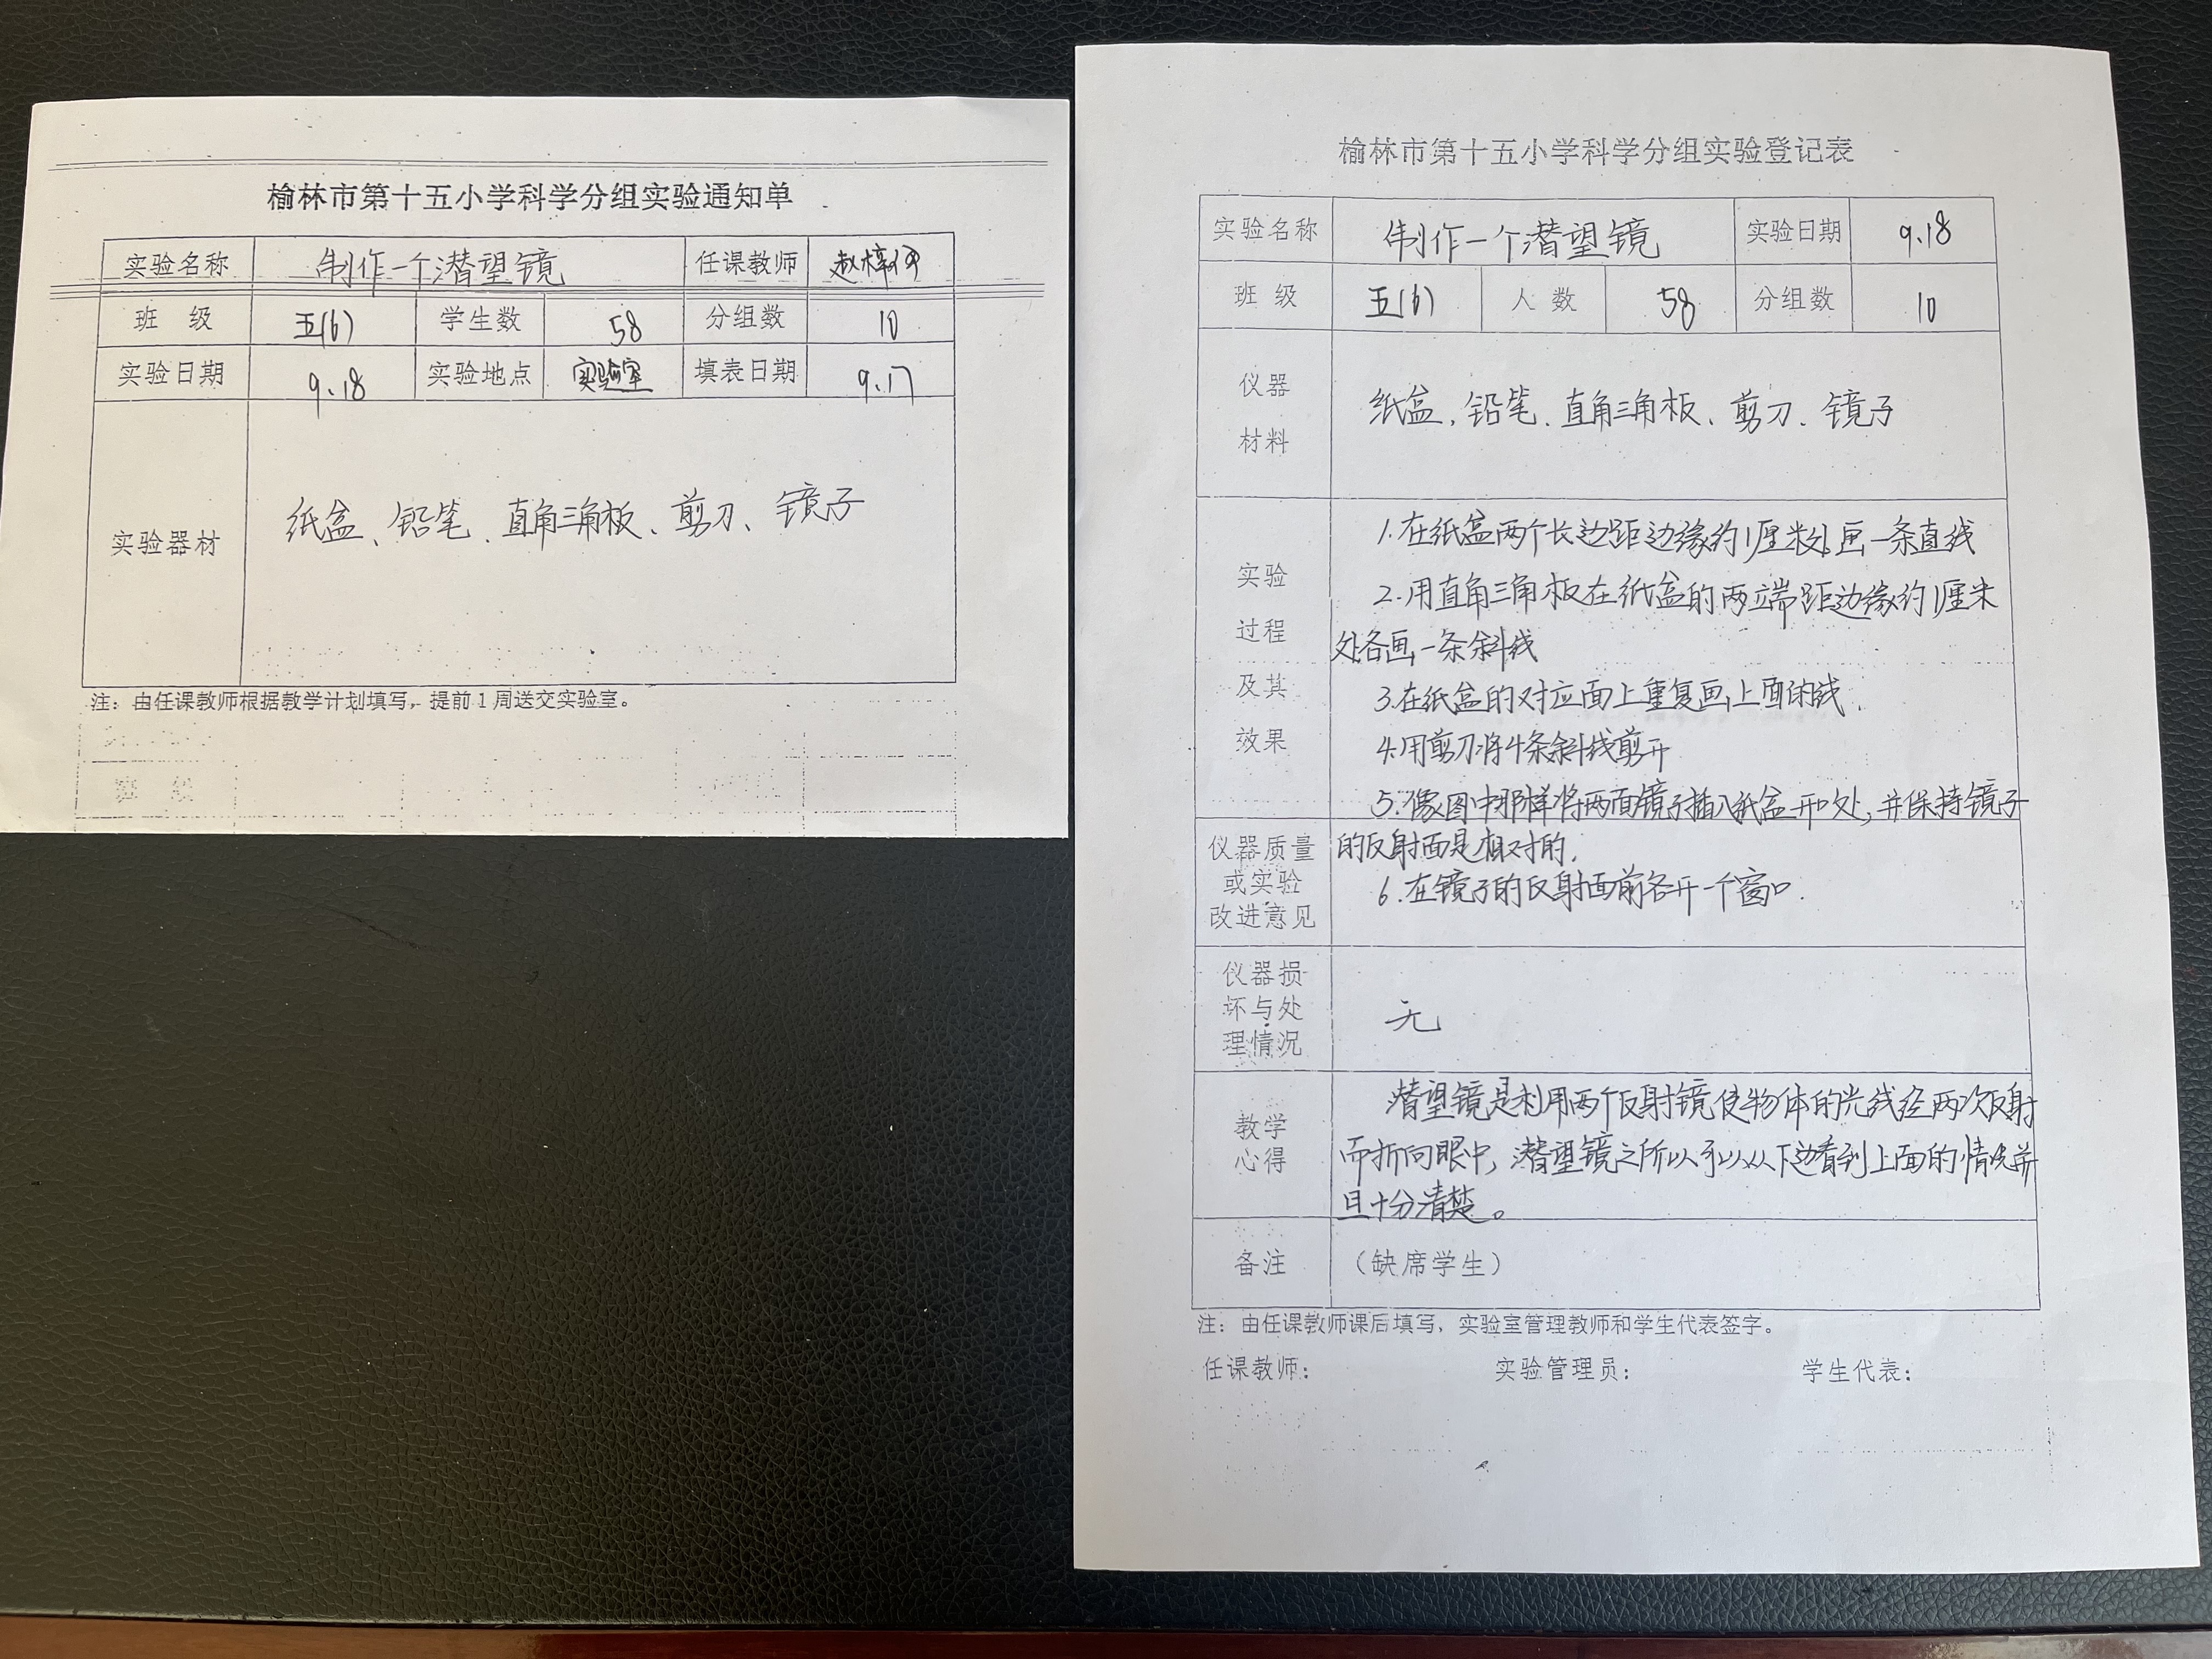 榆林市第十五小学科学分组实验通知单
实验名称 制作一个潜望镜 任课教师
班 级 五(6) 学生数 58 分组数 10
实验日期 9.18 实验地点 实验室 填表日期 9.17
实验器材 纸盒、铅笔、直角三角板、剪刀、镜子
注：由任课教师根据教学计划填写，提前1周送交实验室。
班 级
榆林市第十五小学科学分组实验登记表
实验名称 制作一个潜望镜 实验日期 9.18
班 级 五(6) 人 数 58 分组数 10
仪器
材料
纸盒、铅笔、直角三角板、剪刀、镜子
实验
过程
及其
效果
1.在纸盒两个长边距边缘约1厘米处画一条直线
2.用直角三角板在纸盒的两端距边缘约1厘米
处各画一条斜线
3.在纸盒的对应面上重复画上面的线.
4.用剪刀将4条斜线剪开
5.像图中那样将两面镜子插入纸盒开口处,并保持镜子
的反射面是相对的.
6.在镜子的反射面前各开一个窗口.
仪器质量
或实验
改进意见
仪器损
坏与处
理情况
无
教学
心得
潜望镜是利用两个反射镜使物体的光线经两次反射
而折向眼中,潜望镜之所以可以从下边看到上面的情况并
且十分清楚。
备注 （缺席学生）
注：由任课教师课后填写，实验室管理教师和学生代表签字。
任课教师： 实验管理员： 学生代表：